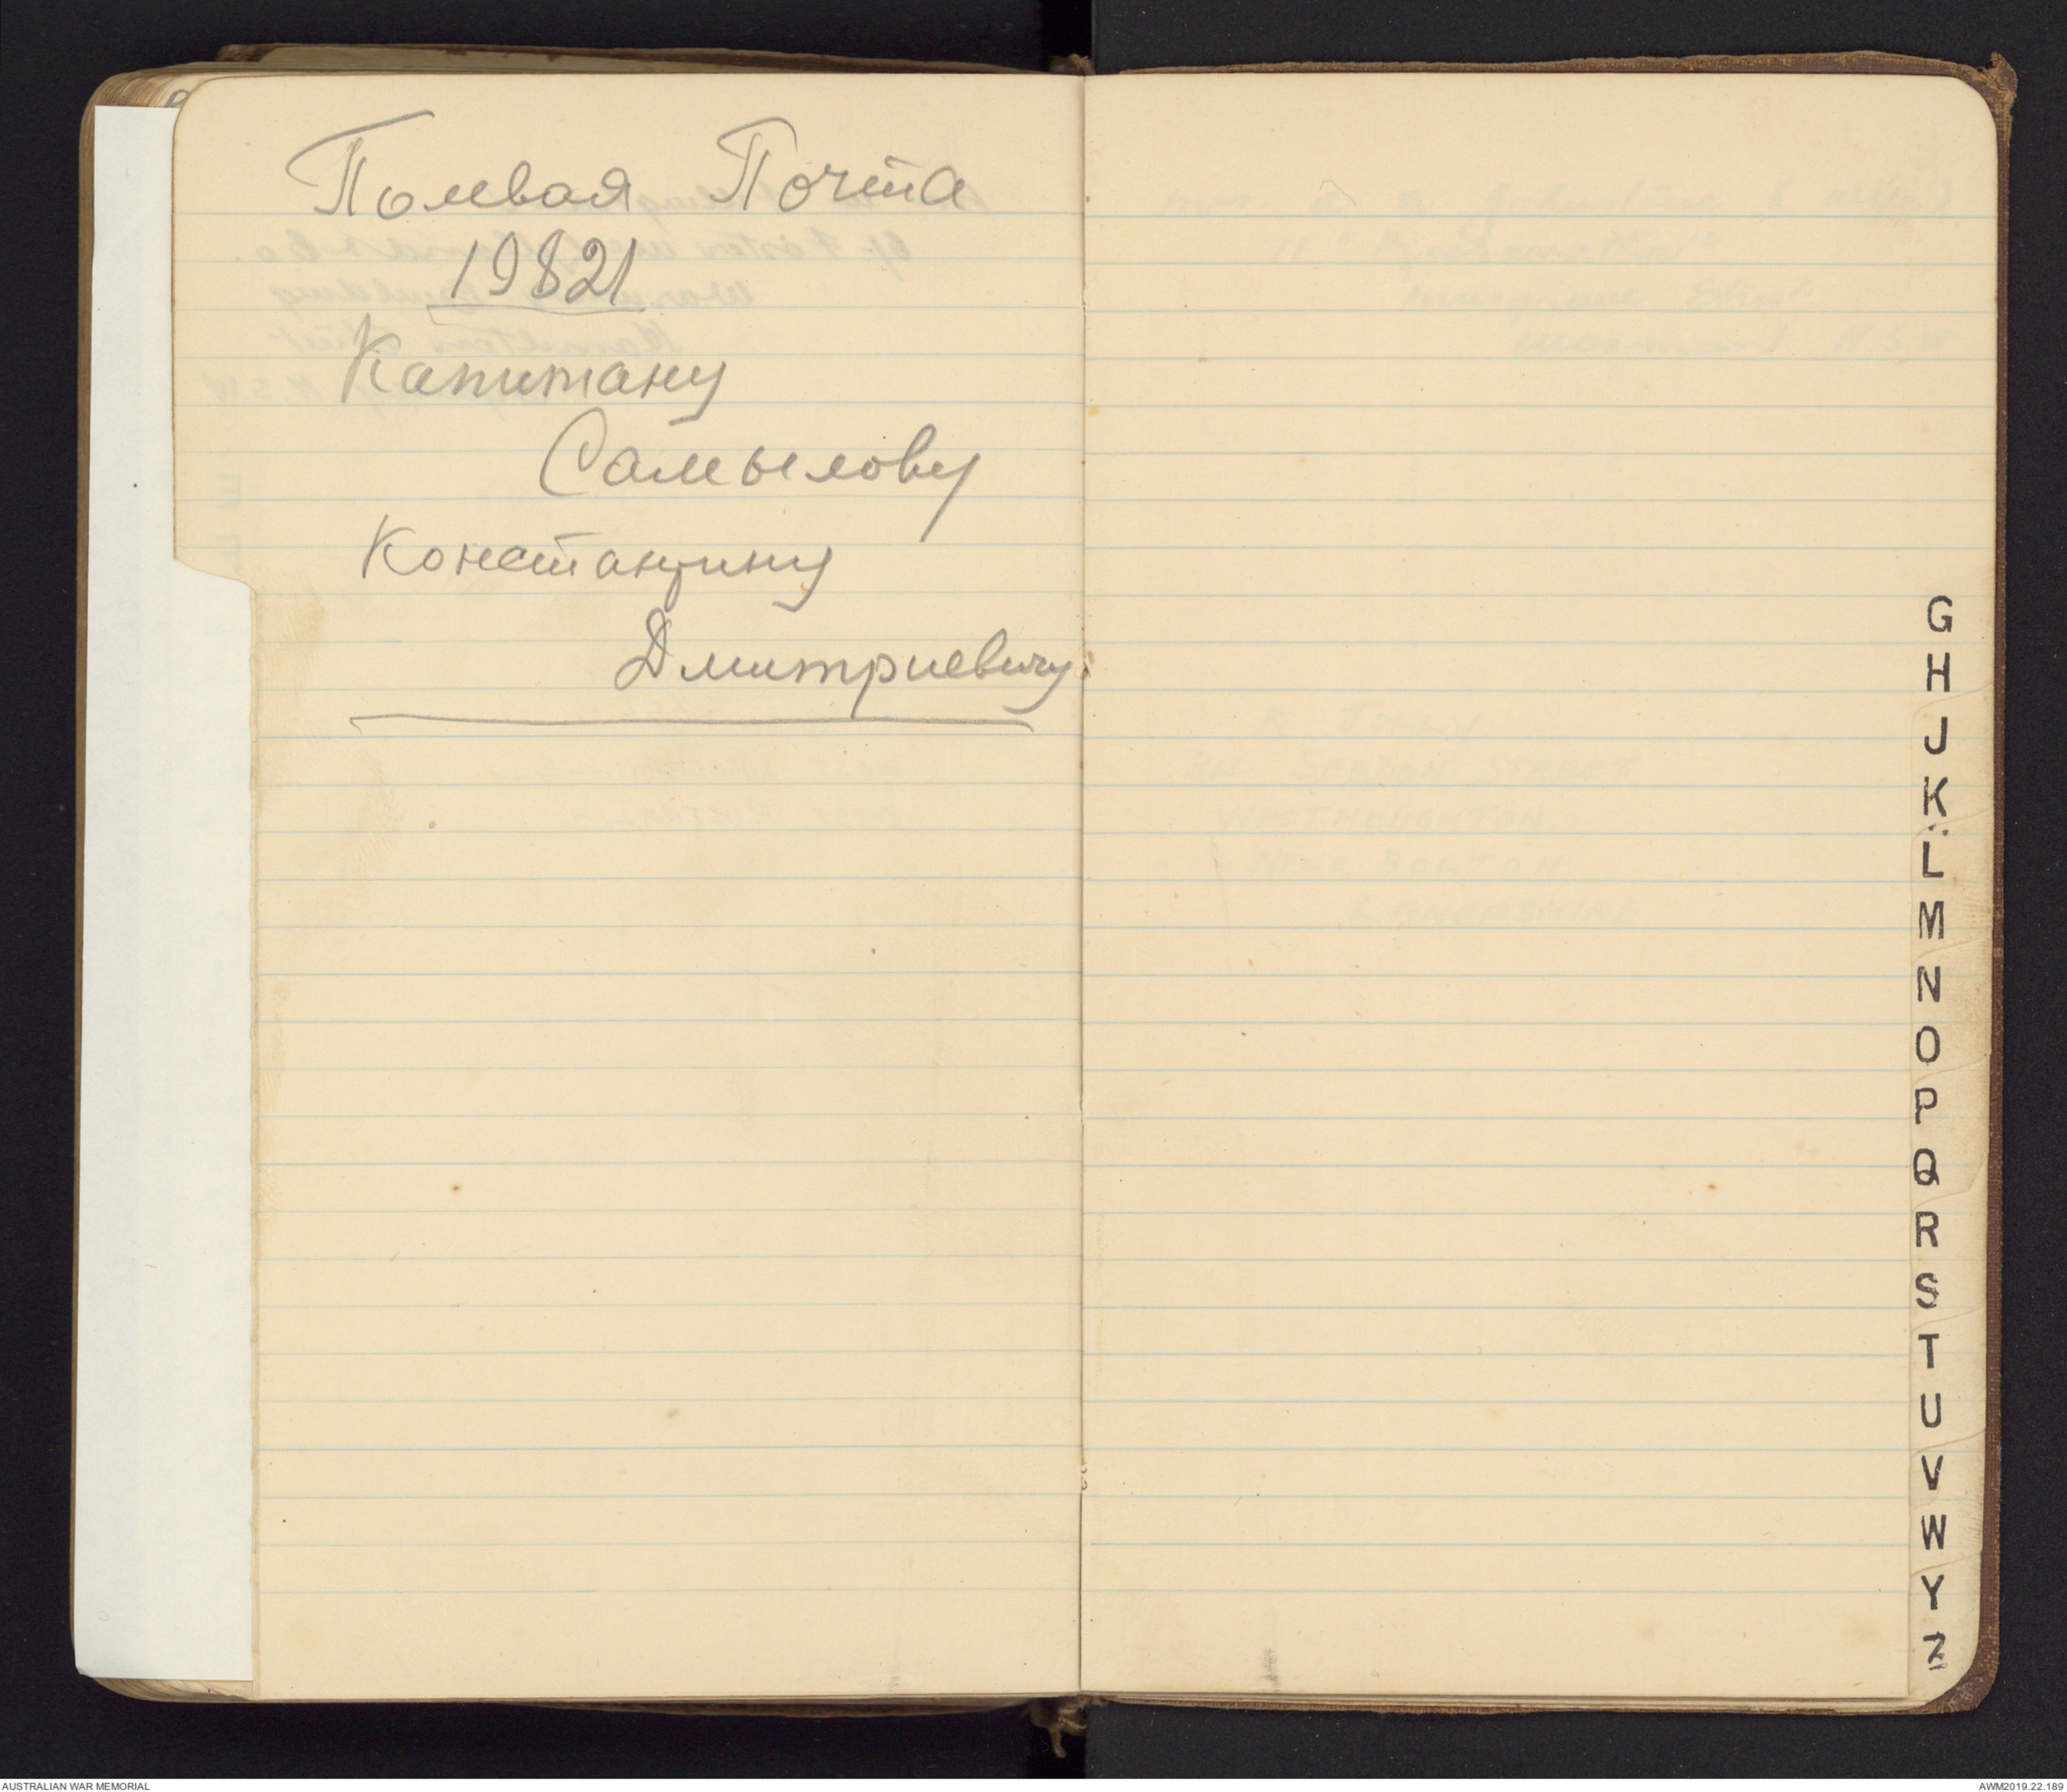 Полевая Почта
19821
Капитану
Самылову
Константину
Дмитриевичу
G
H
J
K
L
M
N
O
P
Q
R
S
T
U
V
W
Y
Z
AUSTRALIAN WAR MEMORIAL
AWM2019.22.189